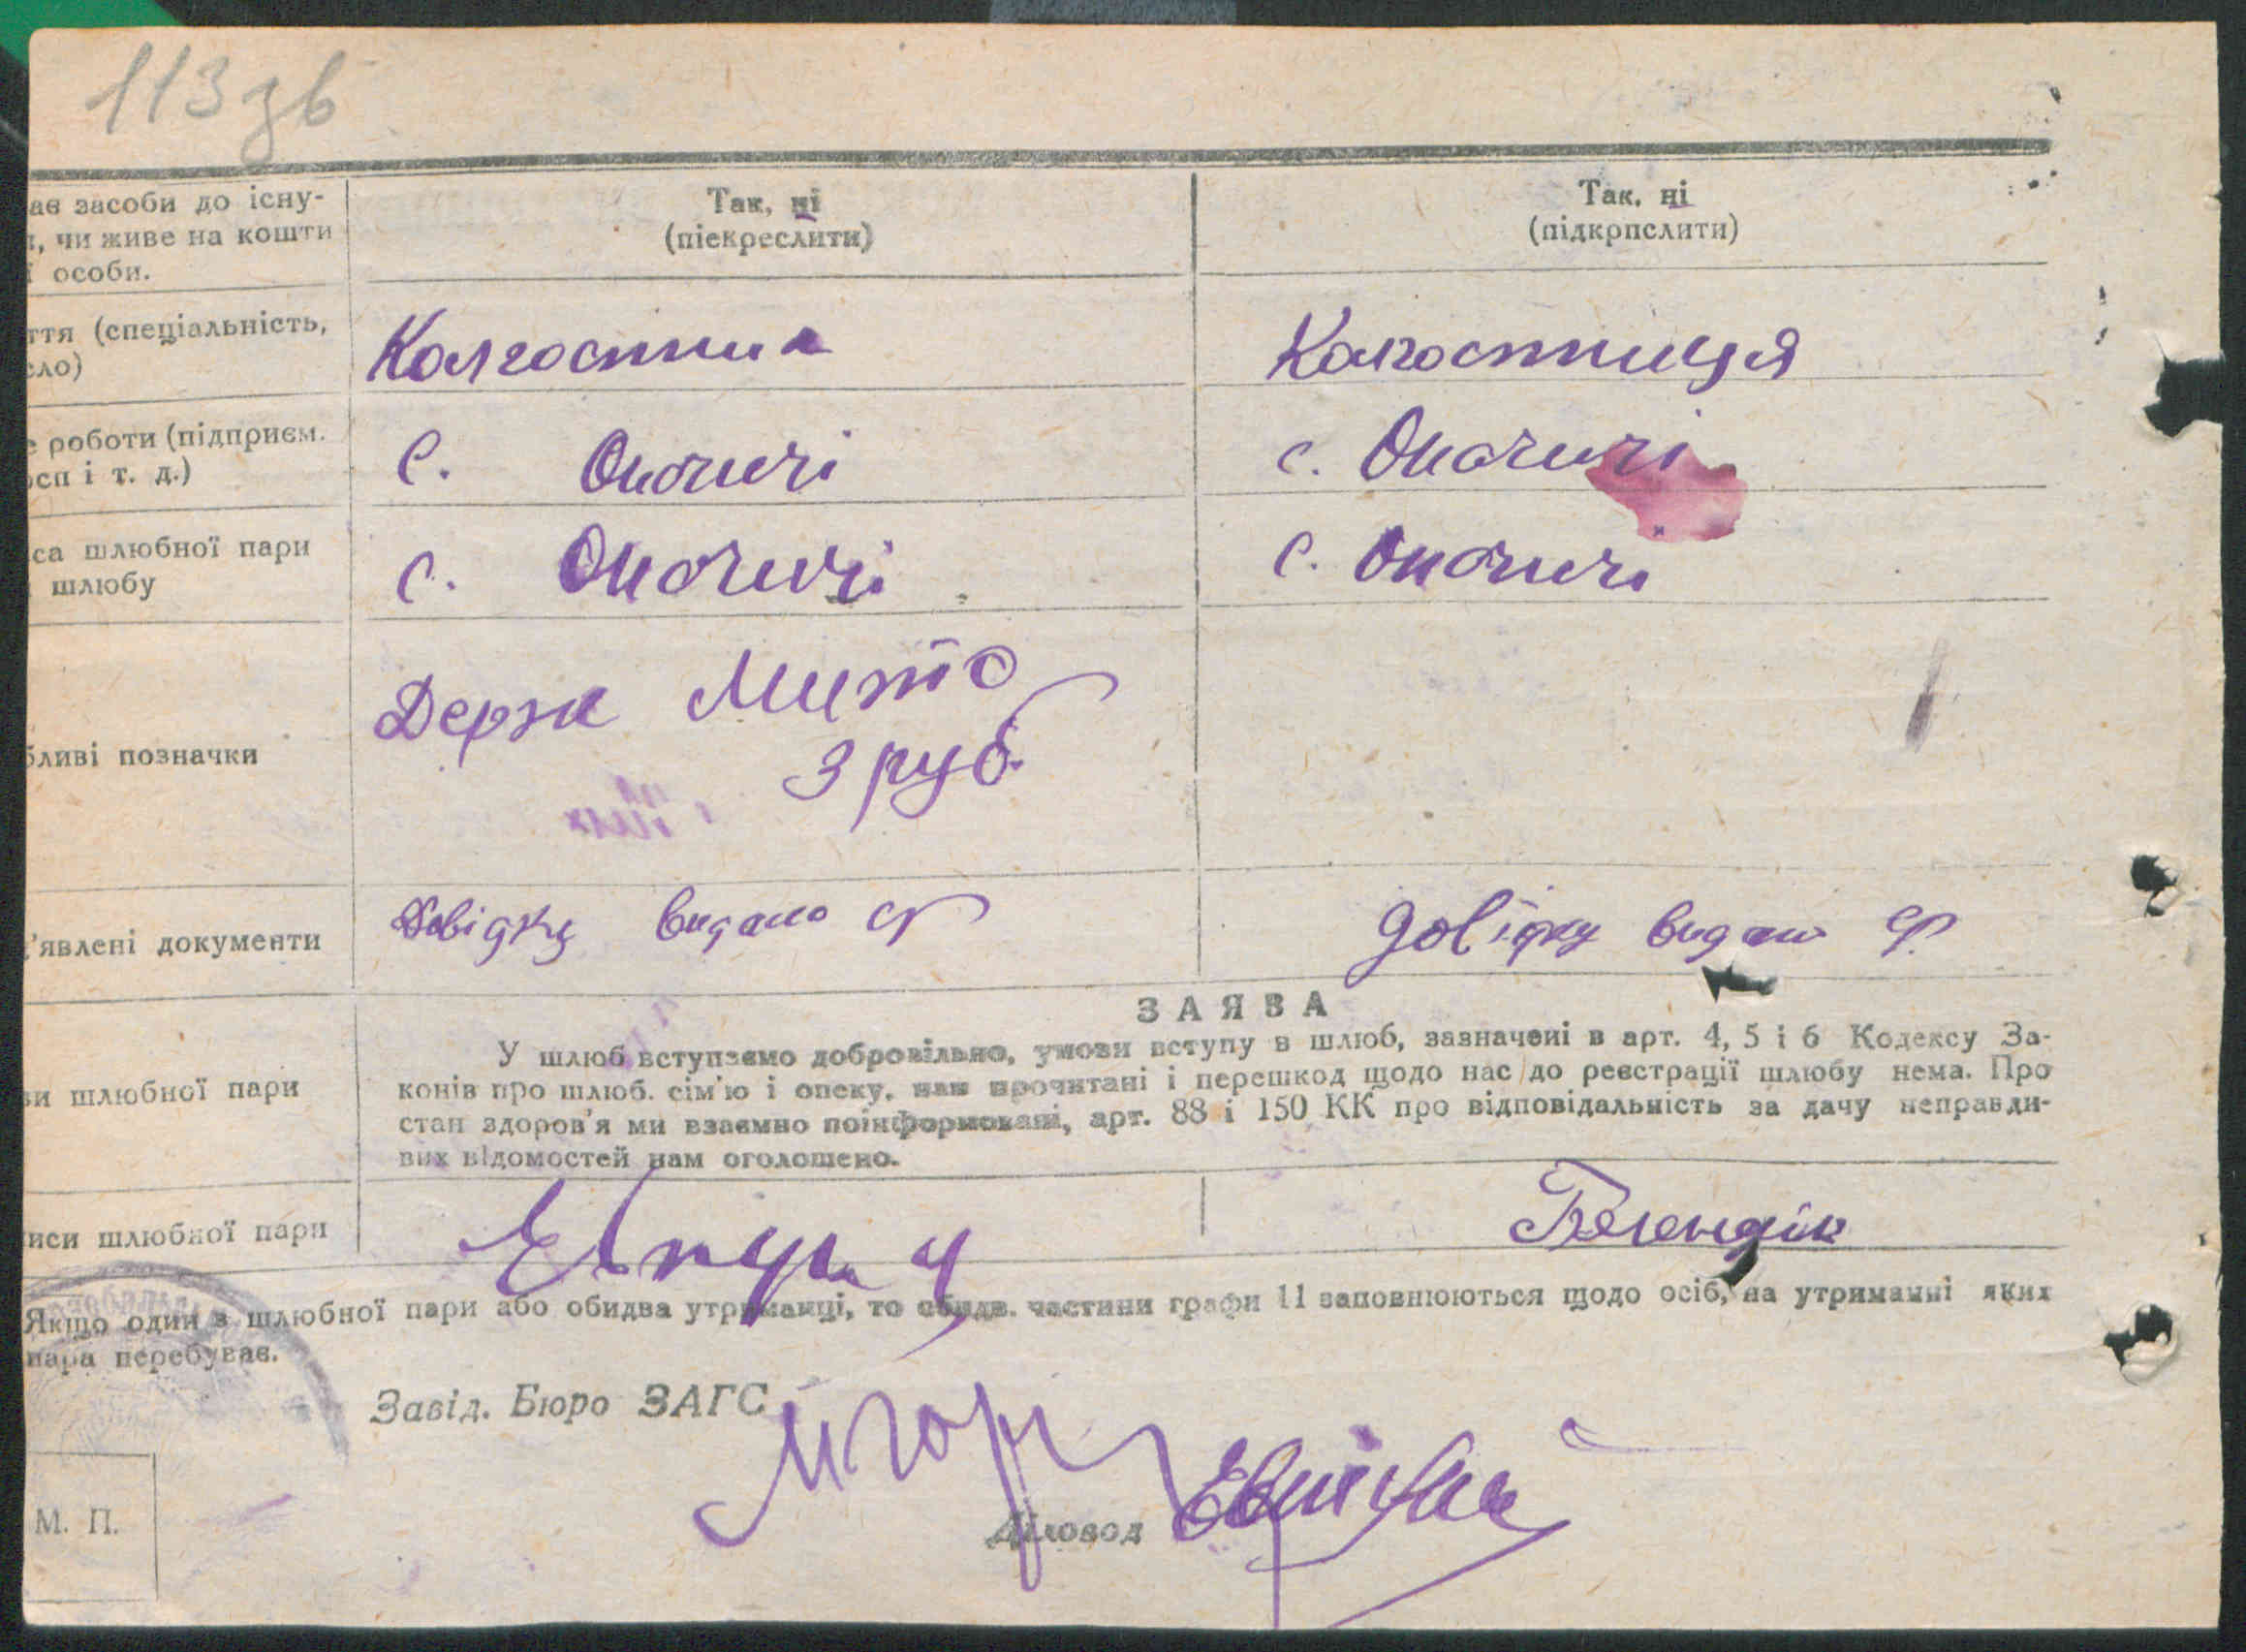 113 зв
ає засоби до існу-
, чи живе на кошти
ї особи.
Так, ні
(піекреслити)
Так, ні
(підкрпслити)
ття (спеціальність,
сло)
Колгоспник
Колгоспниця
роботи (підприєм.
осп і т. д.)
с. Опачичі
с. Опачичі
са шлюбної пари
шлюбу
с. Опачичі
с. Опачичі
бливі позначки
Держ Мито
3 руб.
'явлені документи
Довідку видано ср
Довідку видано ср
ЗАЯВА
ви шлюбної пари
У шлюб вступаємо добровільно, умови вступу в шлюб, зазначені в арт. 4, 5 і 6 Кодексу За-
конів про шлюб. сім'ю і опеку, нам прочитані і перешкод щодо нас до реєстрації шлюбу нема. Про
стан здоров'я ми взаємно поінформовані, арт. 88 і 150 КК про відповідальність за дачу неправди-
вих відомостей нам оголошено.
иси шлюбної пари
Якщо один з шлюбної пари або обидва утриманці, то обидв. частини графи 11 заповнюються щодо осіб, на утриманні яких
пара перебуває.
Завід. Бюро ЗАГС
Діловод
М. П.